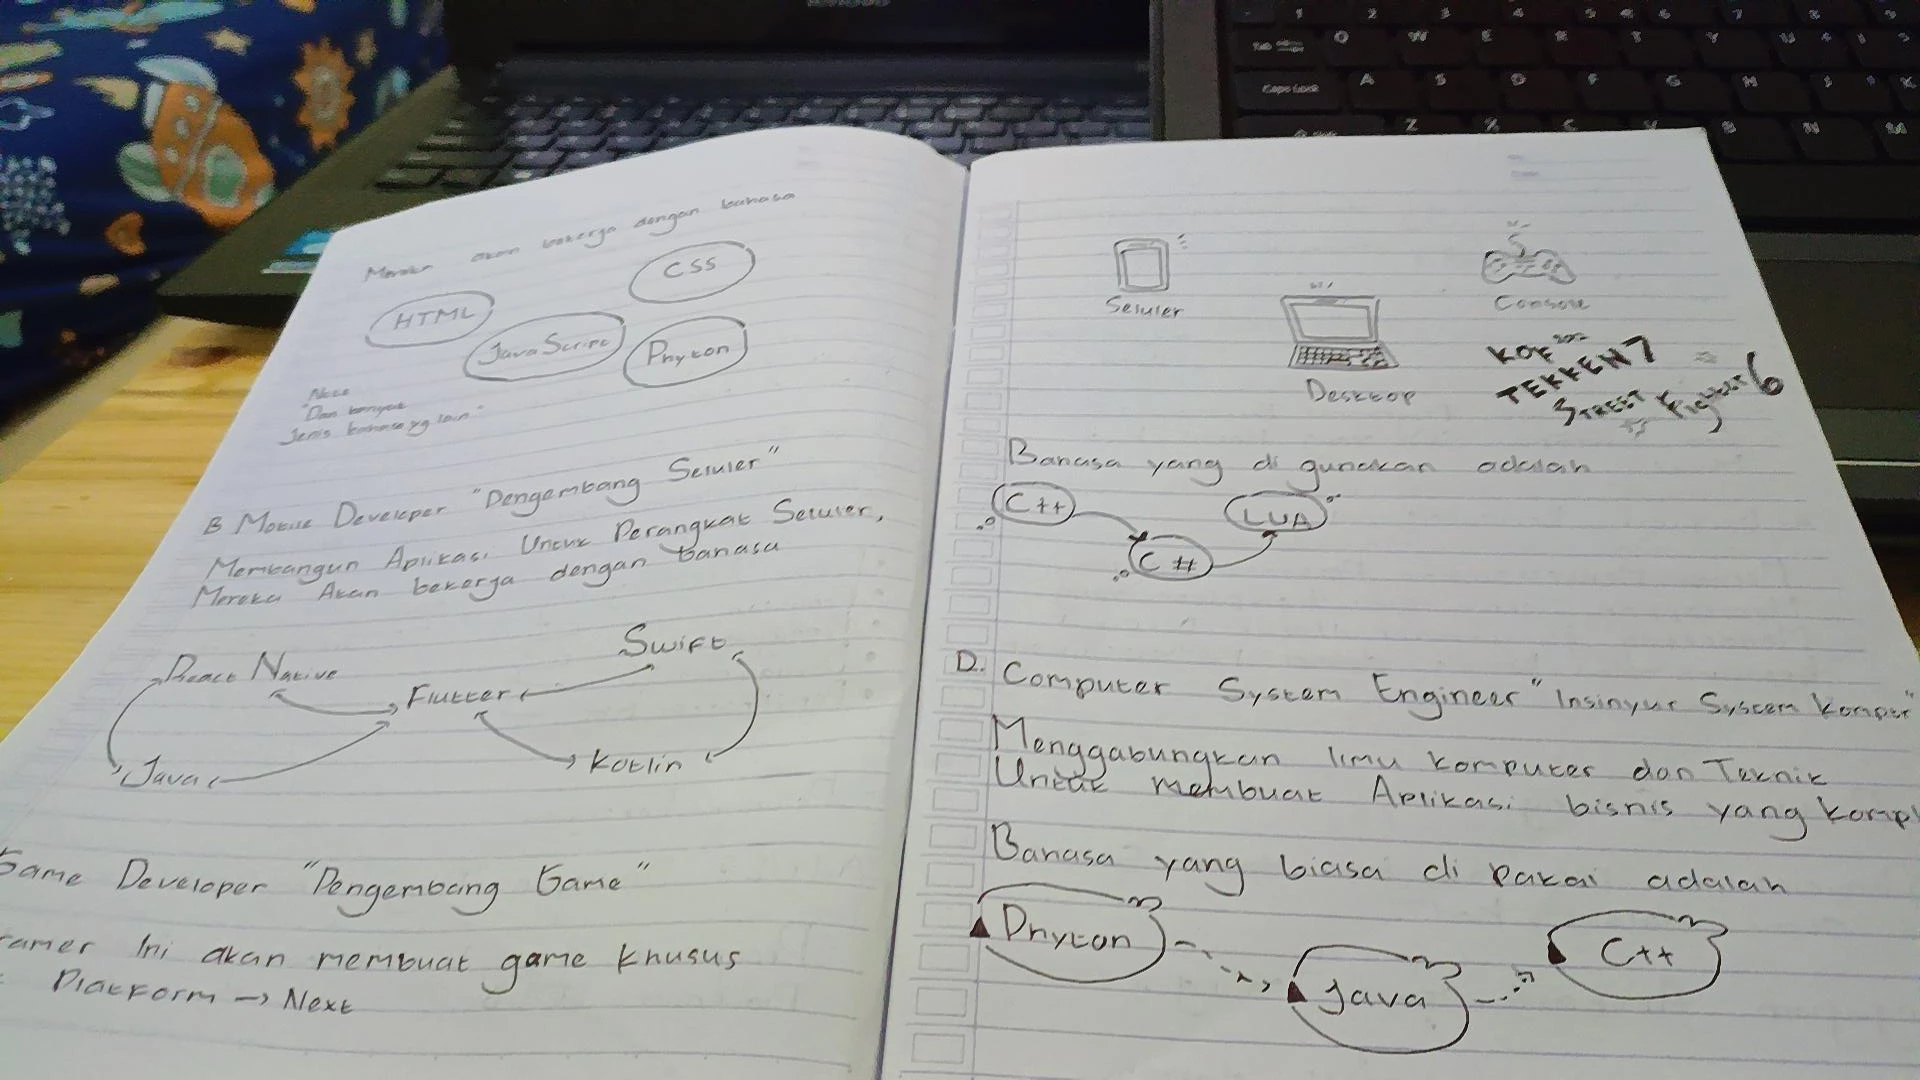 Mereka akan bekerja dengan bahasa
CSS
HTML
JavaScript
Phyton
Note
"Dan banyak
Jenis bahasa yg lain"
B Mobile Developer "Pengembang Seluler"
Membangun Aplikasi Untuk Perangkat Seluler,
Mereka Akan bekerja dengan bahasa
Swift
React Native
Flutter
Java
Kotlin
Game Developer "Pengembang Game"
Ini akan membuat game khusus
Platform → Next
Seluler
Desktop
Console
KOF
TEKKEN 7
STREET Fighter 6
Bahasa yang di gunakan adalah
C++
LUA
C#
D. Computer System Engineer "Insinyur System
Menggabungkan Ilmu komputer dan Teknik
Untuk membuat Aplikasi bisnis yang
Bahasa yang biasa di pakai adalah
Phyton
Java
C++
Tab
Caps Lock
1 2 3 4 5 6 7 8
Q W E R T Y U
A S D F G H J K
Z X C V B N M